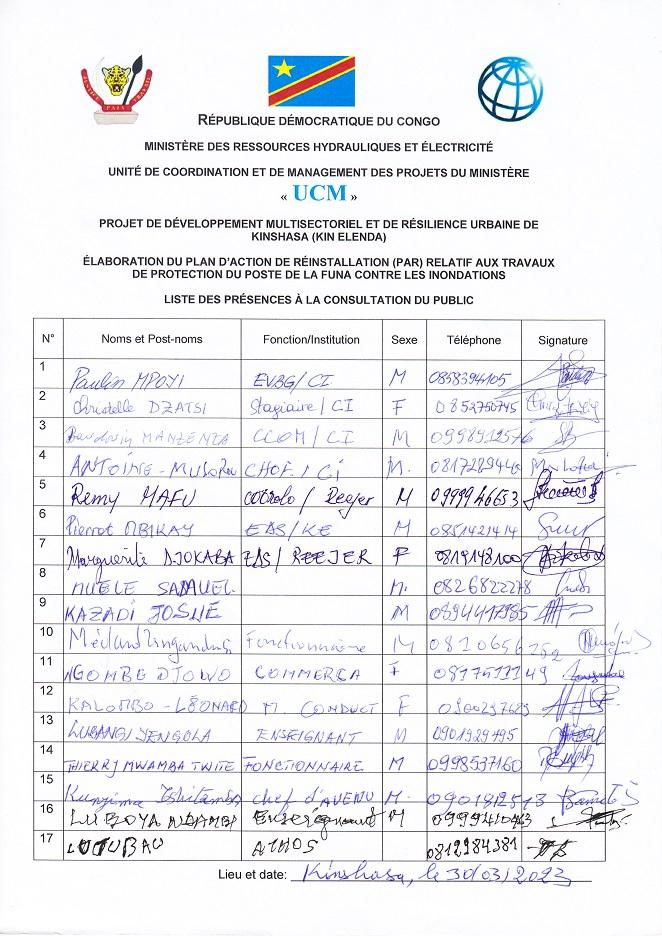 RÉPUBLIQUE DÉMOCRATIQUE DU CONGO
MINISTÈRE DES RESSOURCES HYDRAULIQUES ET ÉLECTRICITÉ
UNITÉ DE COORDINATION ET DE MANAGEMENT DES PROJETS DU MINISTÈRE
« UCM »
PROJET DE DÉVELOPPEMENT MULTISECTORIEL ET DE RÉSILIENCE URBAINE DE
KINSHASA (KIN ELENDA)
ÉLABORATION DU PLAN D'ACTION DE RÉINSTALLATION (PAR) RELATIF AUX TRAVAUX
DE PROTECTION DU POSTE DE LA FUNA CONTRE LES INONDATIONS
LISTE DES PRÉSENCES À LA CONSULTATION DU PUBLIC
N° Noms et Post-noms Fonction/Institution Sexe Téléphone Signature
1 Paulin MPOYI EVBG/CI M 0858394105
2 Christelle DZATSI Stagiaire/CI F 0852750745
3 MANZENZA CCOM/CI M 0998912576
4 ANTOINE - CHOF./CI M. 081728944
5 Remy MAFU / Reejer M 0999946653
6 Pierrot MBIKAY EAS/KE M 0851421414
7 Marguerite DJOKABA EAS/REEJER F 0819148100
8 SAMUEL. M. 0826822278
9 KAZADI JOSUÉ M 0894417985
10 Fonctionnaire M
11 NGOMBE DJOWO COMMERÇA F
12 KALOMBO - LÉONARD M. CONDUCT F
13 LUBANGI YENGOLA ENSEIGNANT M 0901929495
14 THIERRY MWAMBA TWITE FONCTIONNAIRE M 0998537160
15 Tshitamba chef d'AVENU M. 0901812513
16 LUBOYA Enseignant M
17 ATHOS 0812984381
Lieu et date: Kinshasa, le 30/03/2023